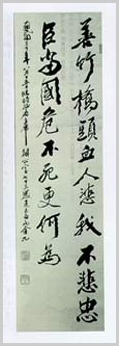 善竹橋頭血人悲我不悲忠
臣當國危不死更何為
七十三 金九